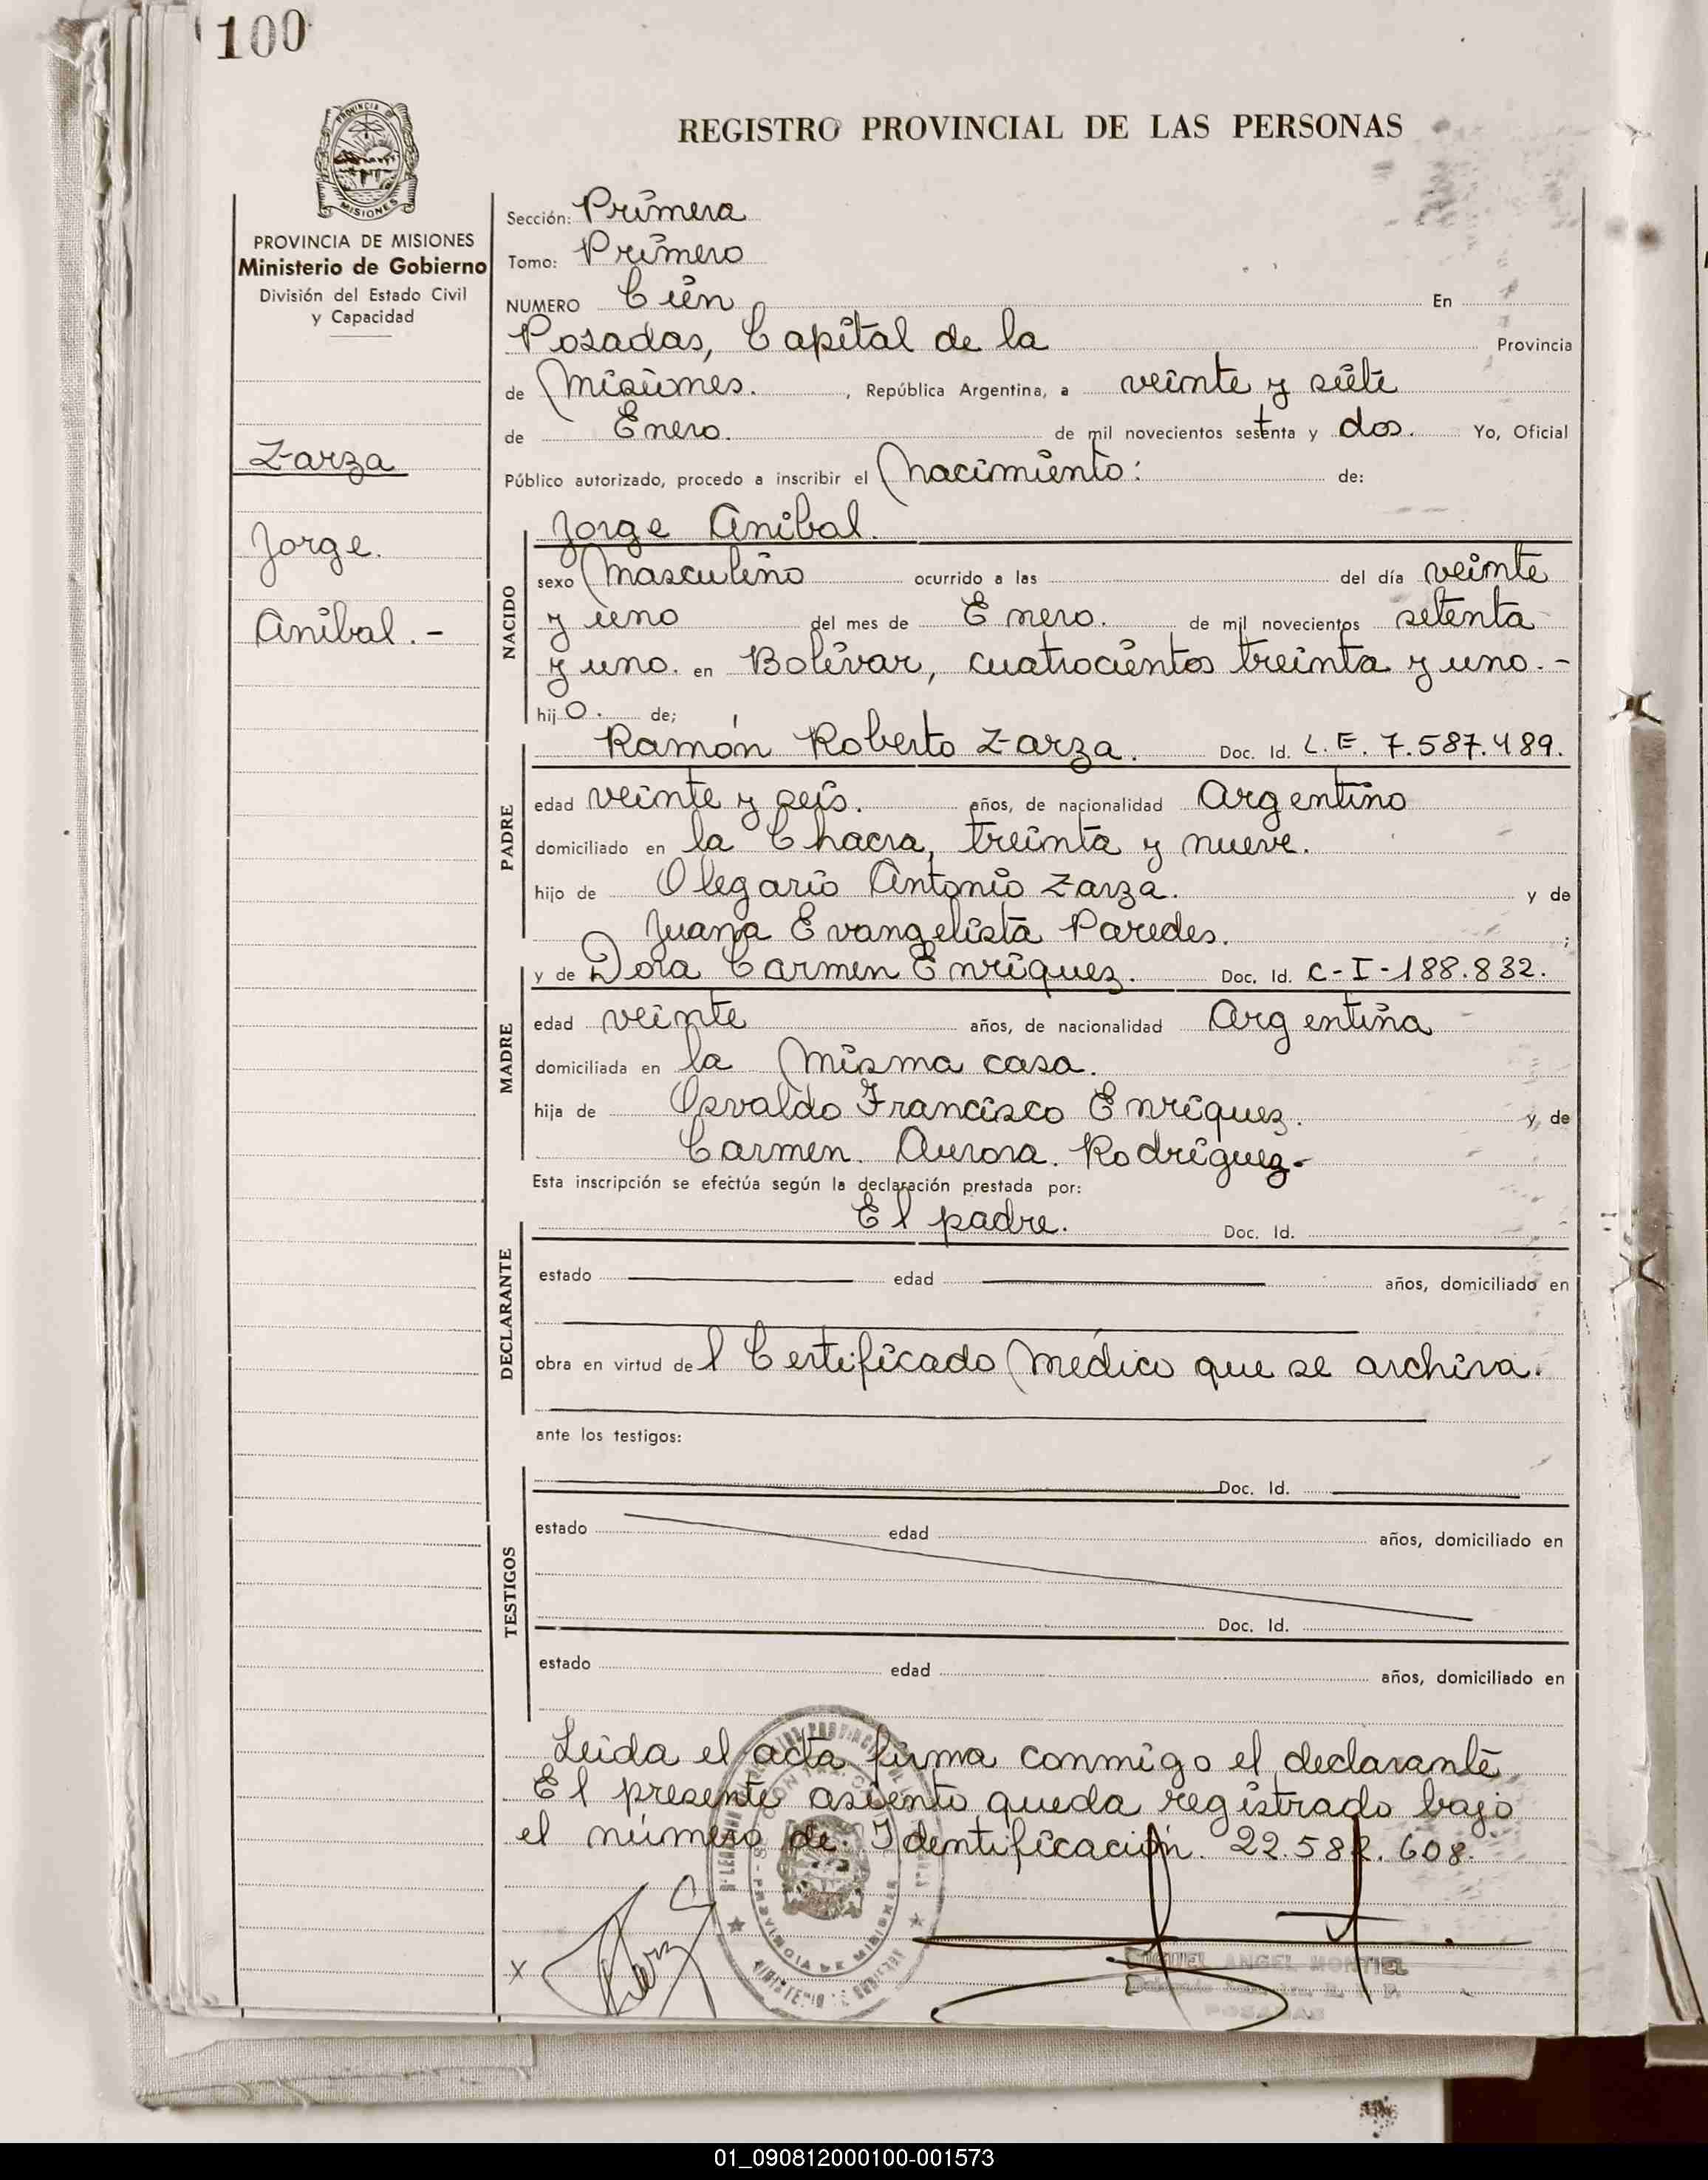 100
REGISTRO PROVINCIAL DE LAS PERSONAS
PROVINCIA
MISIONES
PROVINCIA DE MISIONES
Ministerio de Gobierno
División del Estado Civil
y Capacidad
Zarza
Jorge.
Anibal.-
Sección: Primera
Tomo: Primero
NUMERO Cién En
Posadas, Capital de la Provincia
de Misiones. , República Argentina, a veinte y siete
de Enero. de mil novecientos setenta y dos. Yo, Oficial
Público autorizado, procedo a inscribir el Nacimiento: de:
NACIDO
Jorge Anibal.
sexo Masculino ocurrido a las del día veinte
y uno del mes de Enero. de mil novecientos setenta
y uno. en Bolívar, cuatrocientos treinta y uno.-
hijo. de;
PADRE
Ramón Roberto Zarza. Doc. Id. L.E. 7.587.489.
edad veinte y seis. años, de nacionalidad Argentino
domiciliado en la Chacra, treinta y nueve.
hijo de Olegario Antonio Zarza. y de
Juana Evangelista Paredes. ;
MADRE
y de Dora Carmen Enriquez. Doc. Id. C-I-188.832.
edad veinte años, de nacionalidad Argentina
domiciliada en la Misma casa.
hija de Osvaldo Francisco Enriquez. y de
Carmen. Aurora. Rodríguez.
Esta inscripción se efectúa según la declaración prestada por:
DECLARANTE
El padre. Doc. Id.
estado edad años, domiciliado en
obra en virtud del Certificado Médico que se archiva.
ante los testigos:
TESTIGOS
Doc. Id.
estado edad años, domiciliado en
Doc. Id.
estado edad años, domiciliado en
Leida el acta firma conmigo el declarante
El presente asiento queda registrado bajo
el número de Identificación. 22.582.608.
PROVINCIA DE MISIONES
X
MIGUEL ANGEL MONTIEL
POSADAS
01_090812000100-001573